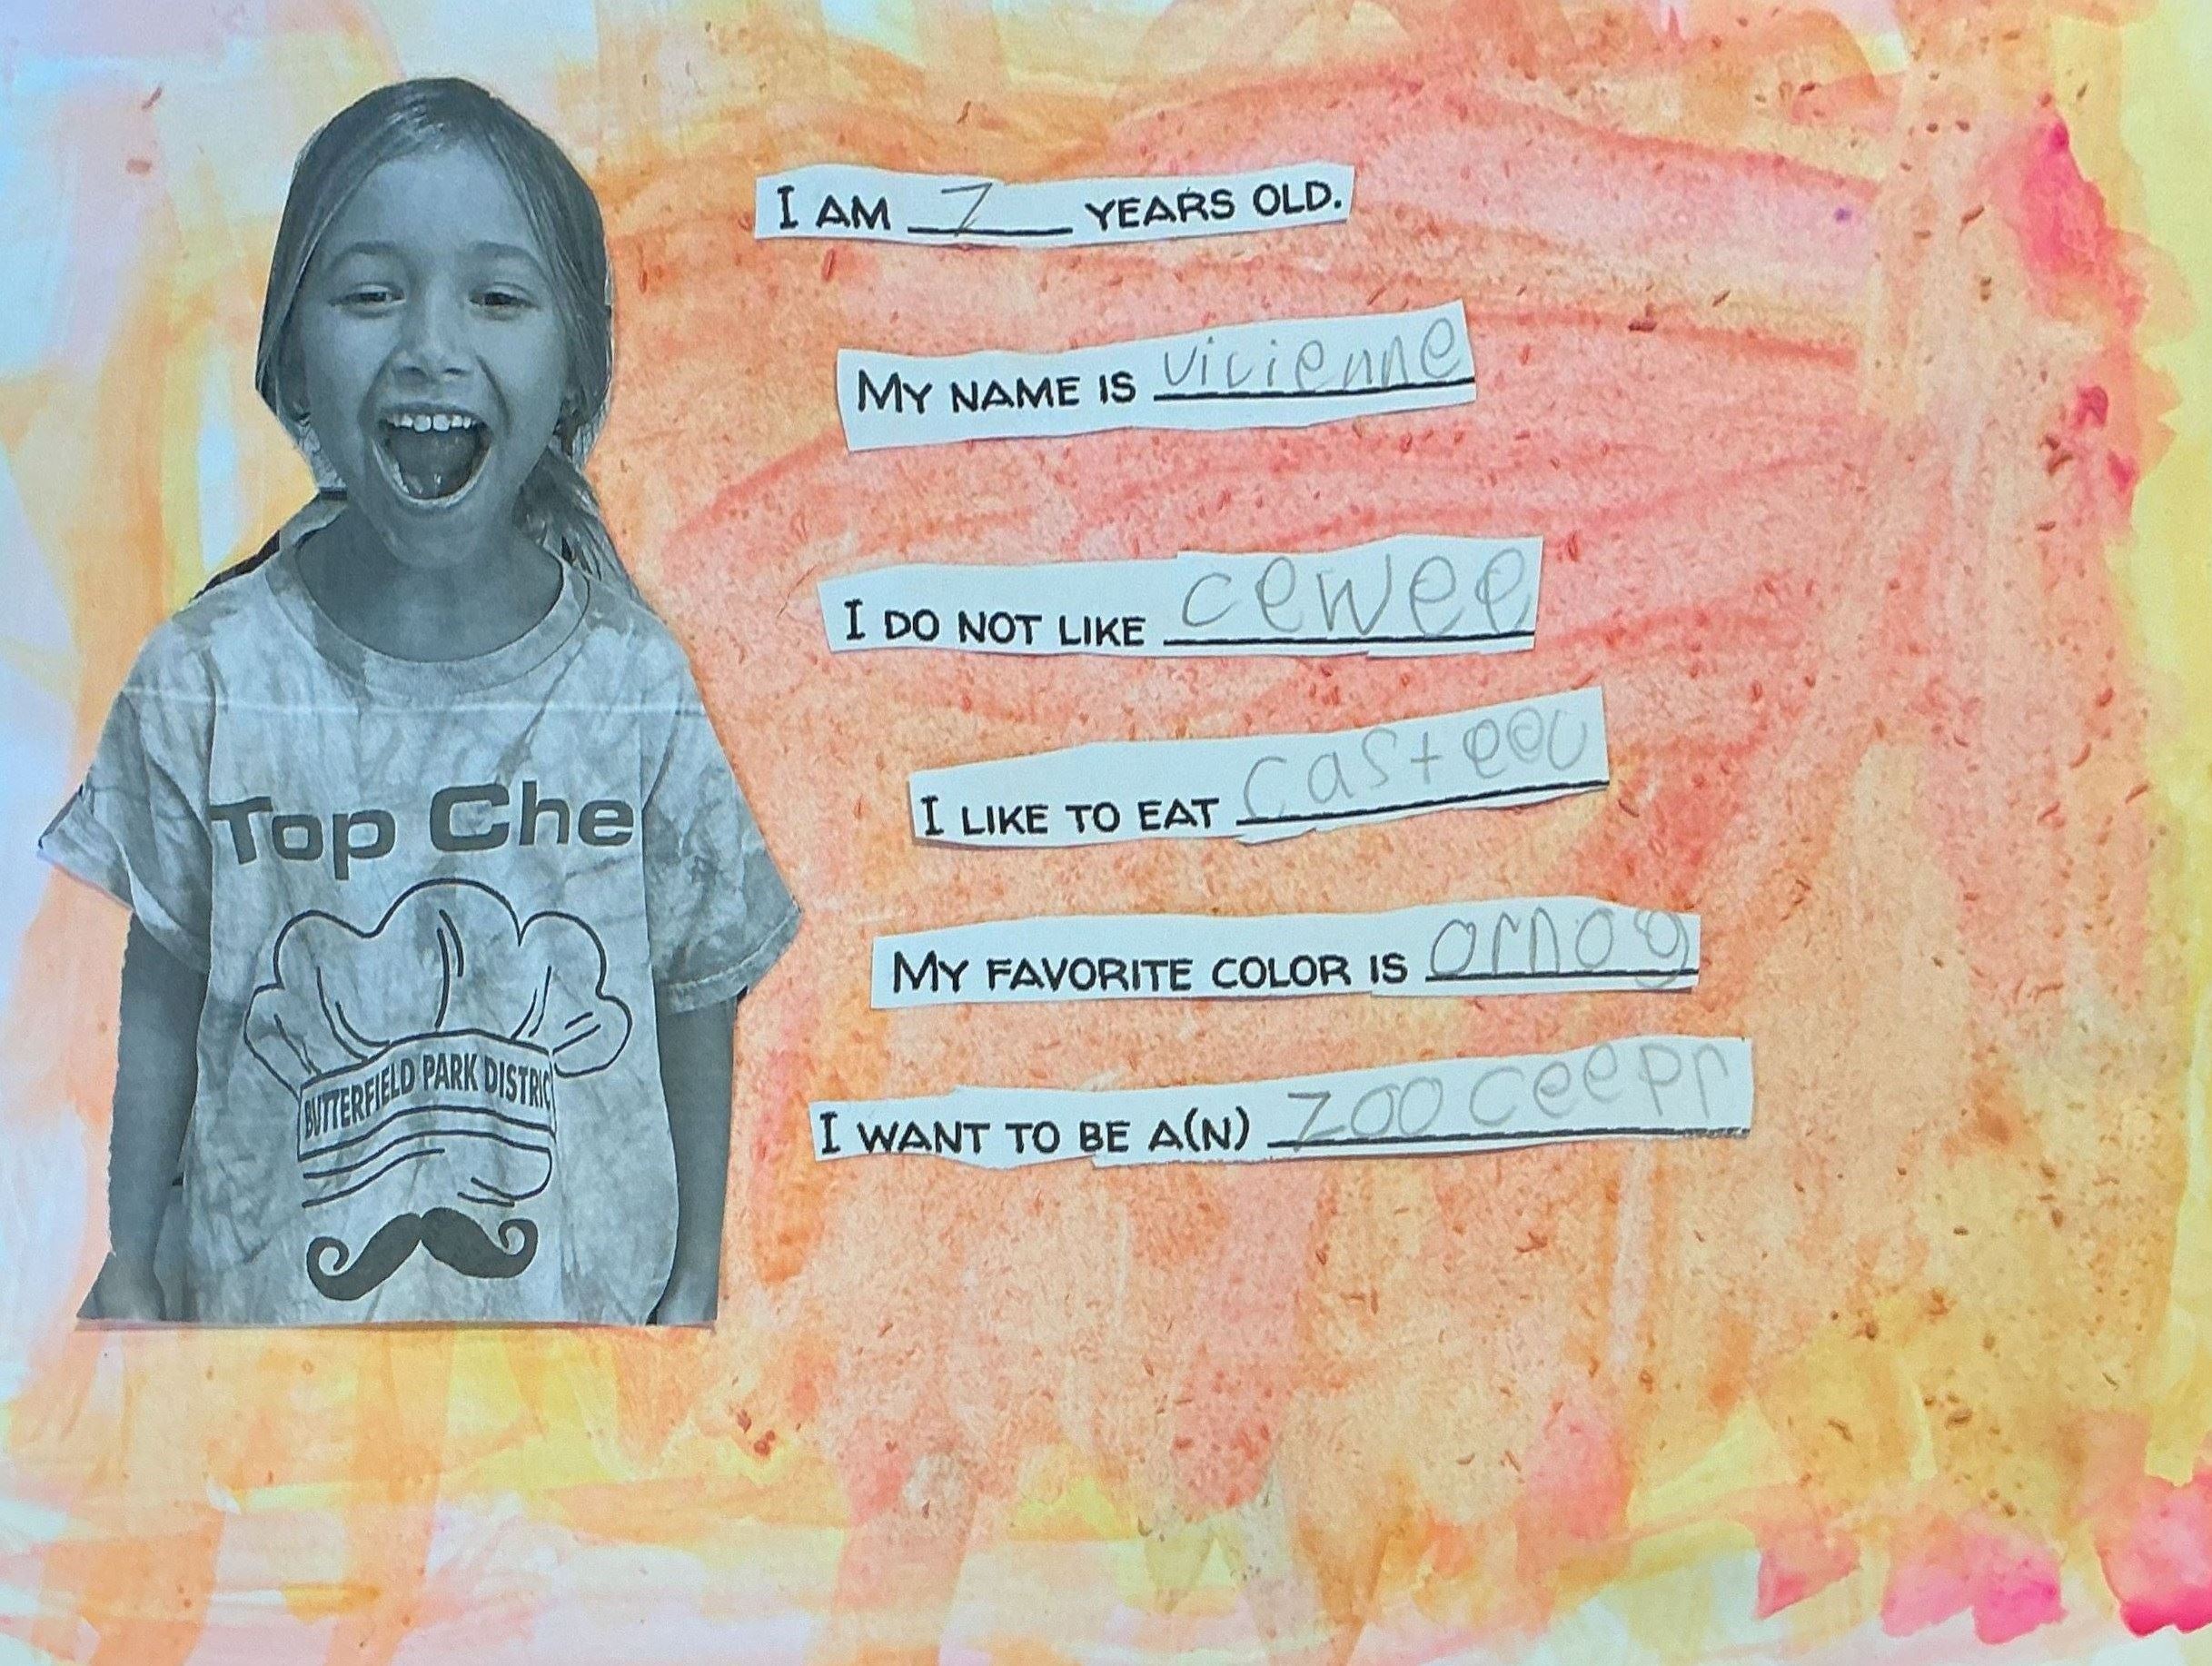 I AM 7 YEARS OLD.
MY NAME IS vivienne
I DO NOT LIKE cewee
I LIKE TO EAT casteou
MY FAVORITE COLOR IS ornog
I WANT TO BE A(N) zoo ceepr
Top Che
BUTTERFIELD PARK DISTRIC